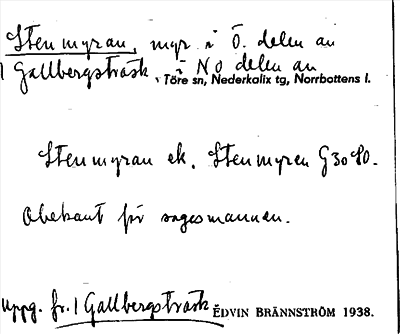 Stenmyran, myr i Ö. delen av
1 Gallbergsträsk, i NO delen av
Töre sn, Nederkalix tg, Norrbottens l.
Stenmyran ek. Stenmyren G30 SO.
Obekant för sagesmannen.
Uppg. fr. 1 Gallbergsträsk
EDVIN BRÄNNSTRÖM 1938.